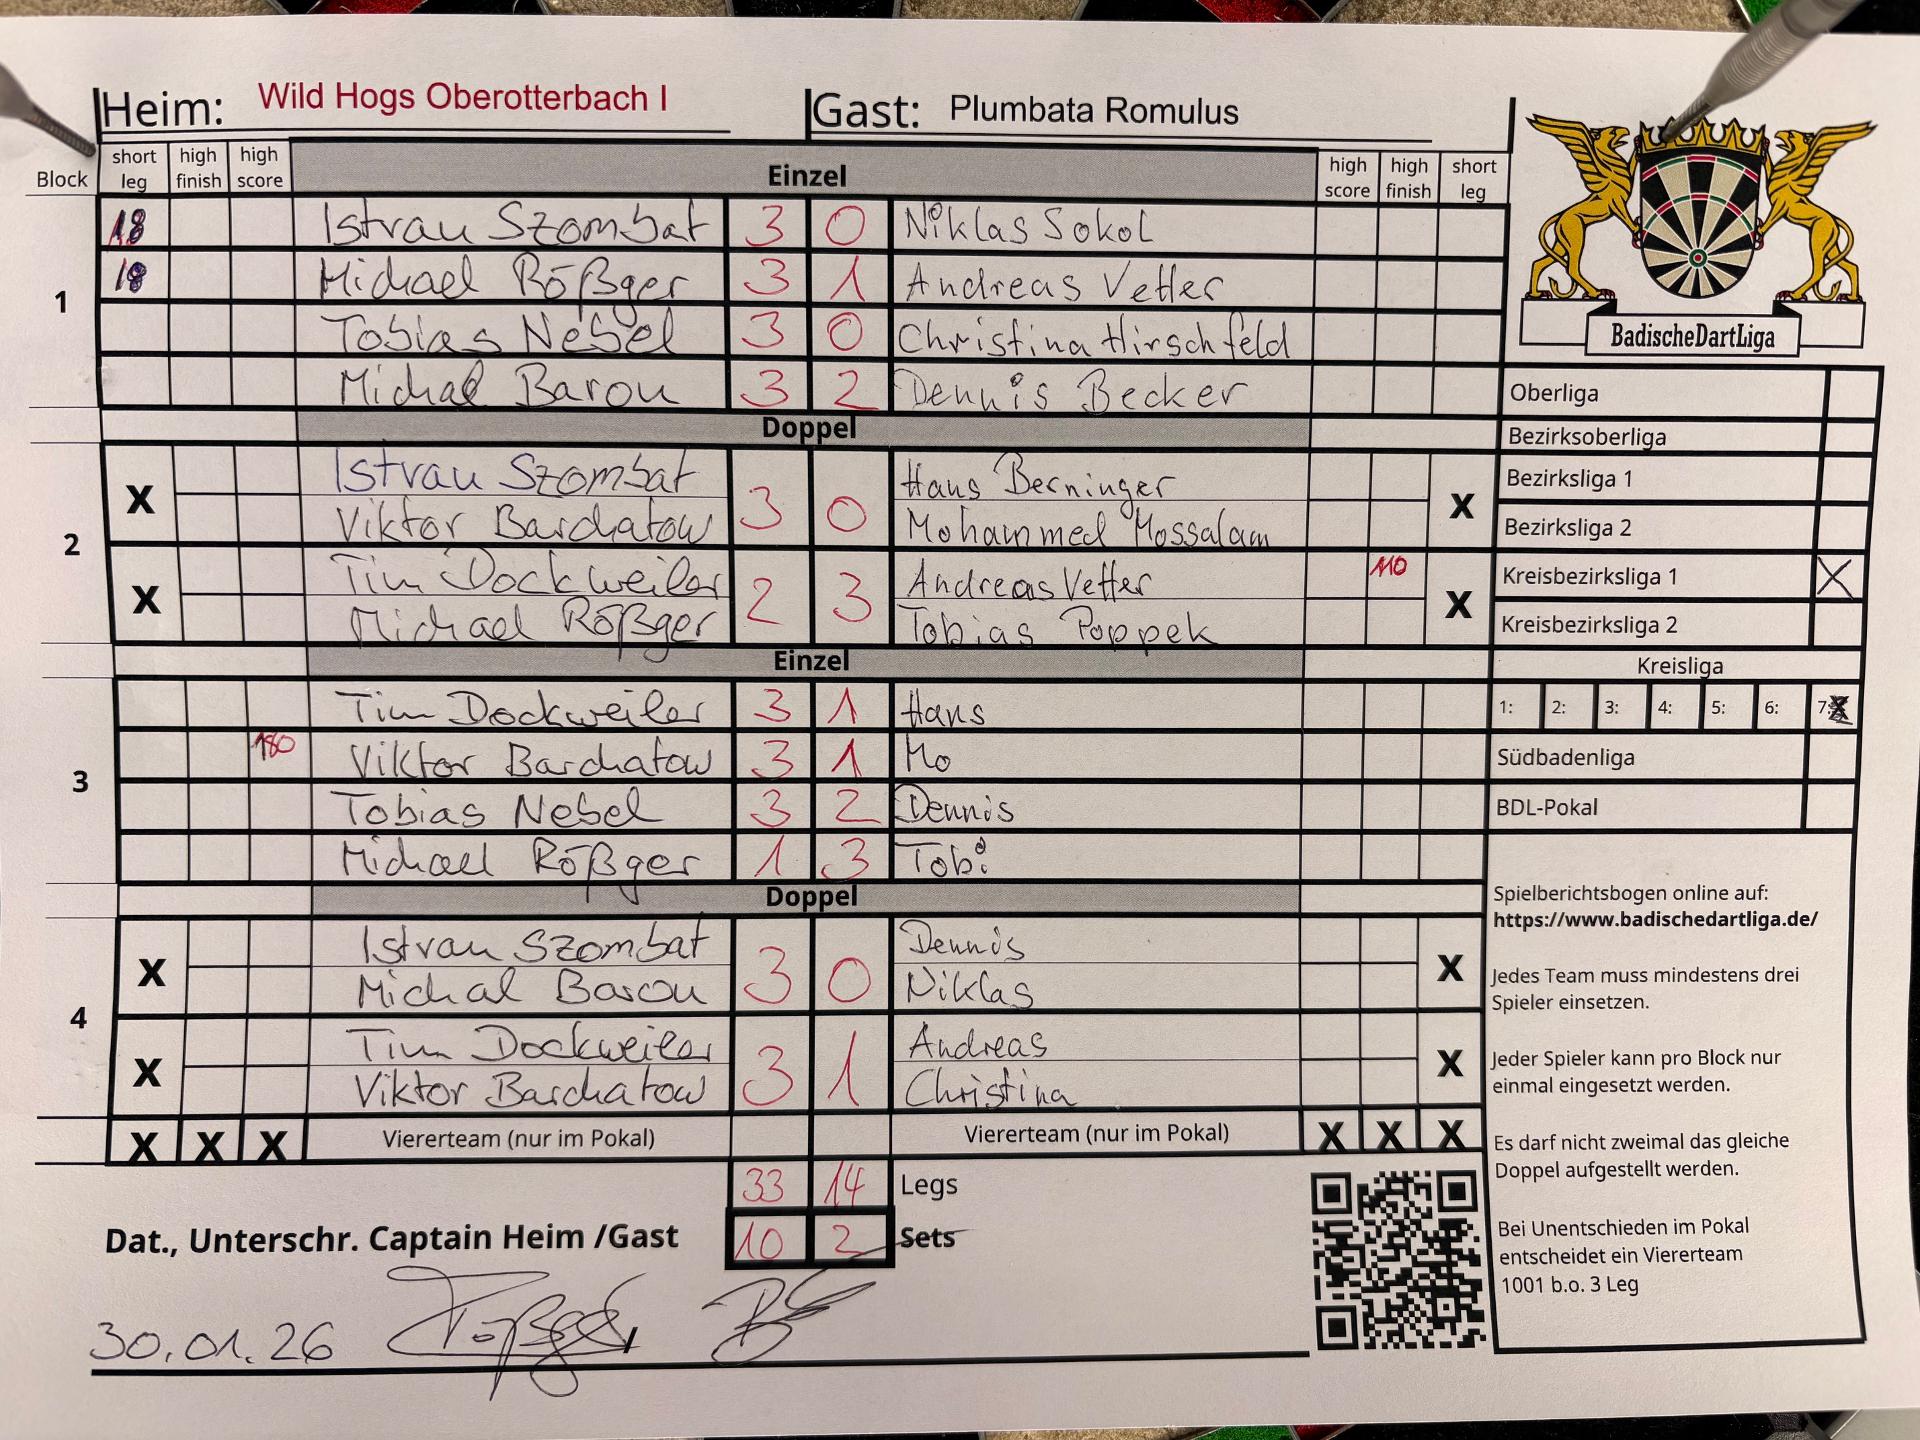 Heim: Wild Hogs Oberotterbach I Gast: Plumbata Romulus
Block short leg high finish high score Einzel high score high finish short leg
1
18 Istvan Szombat 3 0 Niklas Sokol
18 Michael Rößger 3 1 Andreas Vetter
Tobias Nebel 3 0 Christina Hirschfeld
Michal Baron 3 2 Dennis Becker
Doppel
2
X Istvan Szombat 3 0 Hans Berninger X
Viktor Barchatow Mohammed Mossalam
X Tim Dockweiler 2 3 Andreas Vetter 110 X
Michael Rößger Tobias Poppek
Einzel
3
Tim Dockweiler 3 1 Hans
180 Viktor Barchatow 3 1 Mo
Tobias Nebel 3 2 Dennis
Michael Rößger 1 3 Tobi
Doppel
4
X Istvan Szombat 3 0 Dennis X
Michal Baron Niklas
X Tim Dockweiler 3 1 Andreas X
Viktor Barchatow Christina
X X X Viererteam (nur im Pokal) Viererteam (nur im Pokal) X X X
33 14 Legs
Dat., Unterschr. Captain Heim /Gast 10 2 Sets
30.01.26
BadischeDartLiga
Oberliga
Bezirksoberliga
Bezirksliga 1
Bezirksliga 2
Kreisbezirksliga 1 X
Kreisbezirksliga 2
Kreisliga
1: 2: 3: 4: 5: 6: 7:
Südbadenliga
BDL-Pokal
Spielberichtsbogen online auf:
https://www.badischedartliga.de/
Jedes Team muss mindestens drei
Spieler einsetzen.
Jeder Spieler kann pro Block nur
einmal eingesetzt werden.
Es darf nicht zweimal das gleiche
Doppel aufgestellt werden.
Bei Unentschieden im Pokal
entscheidet ein Viererteam
1001 b.o. 3 Leg